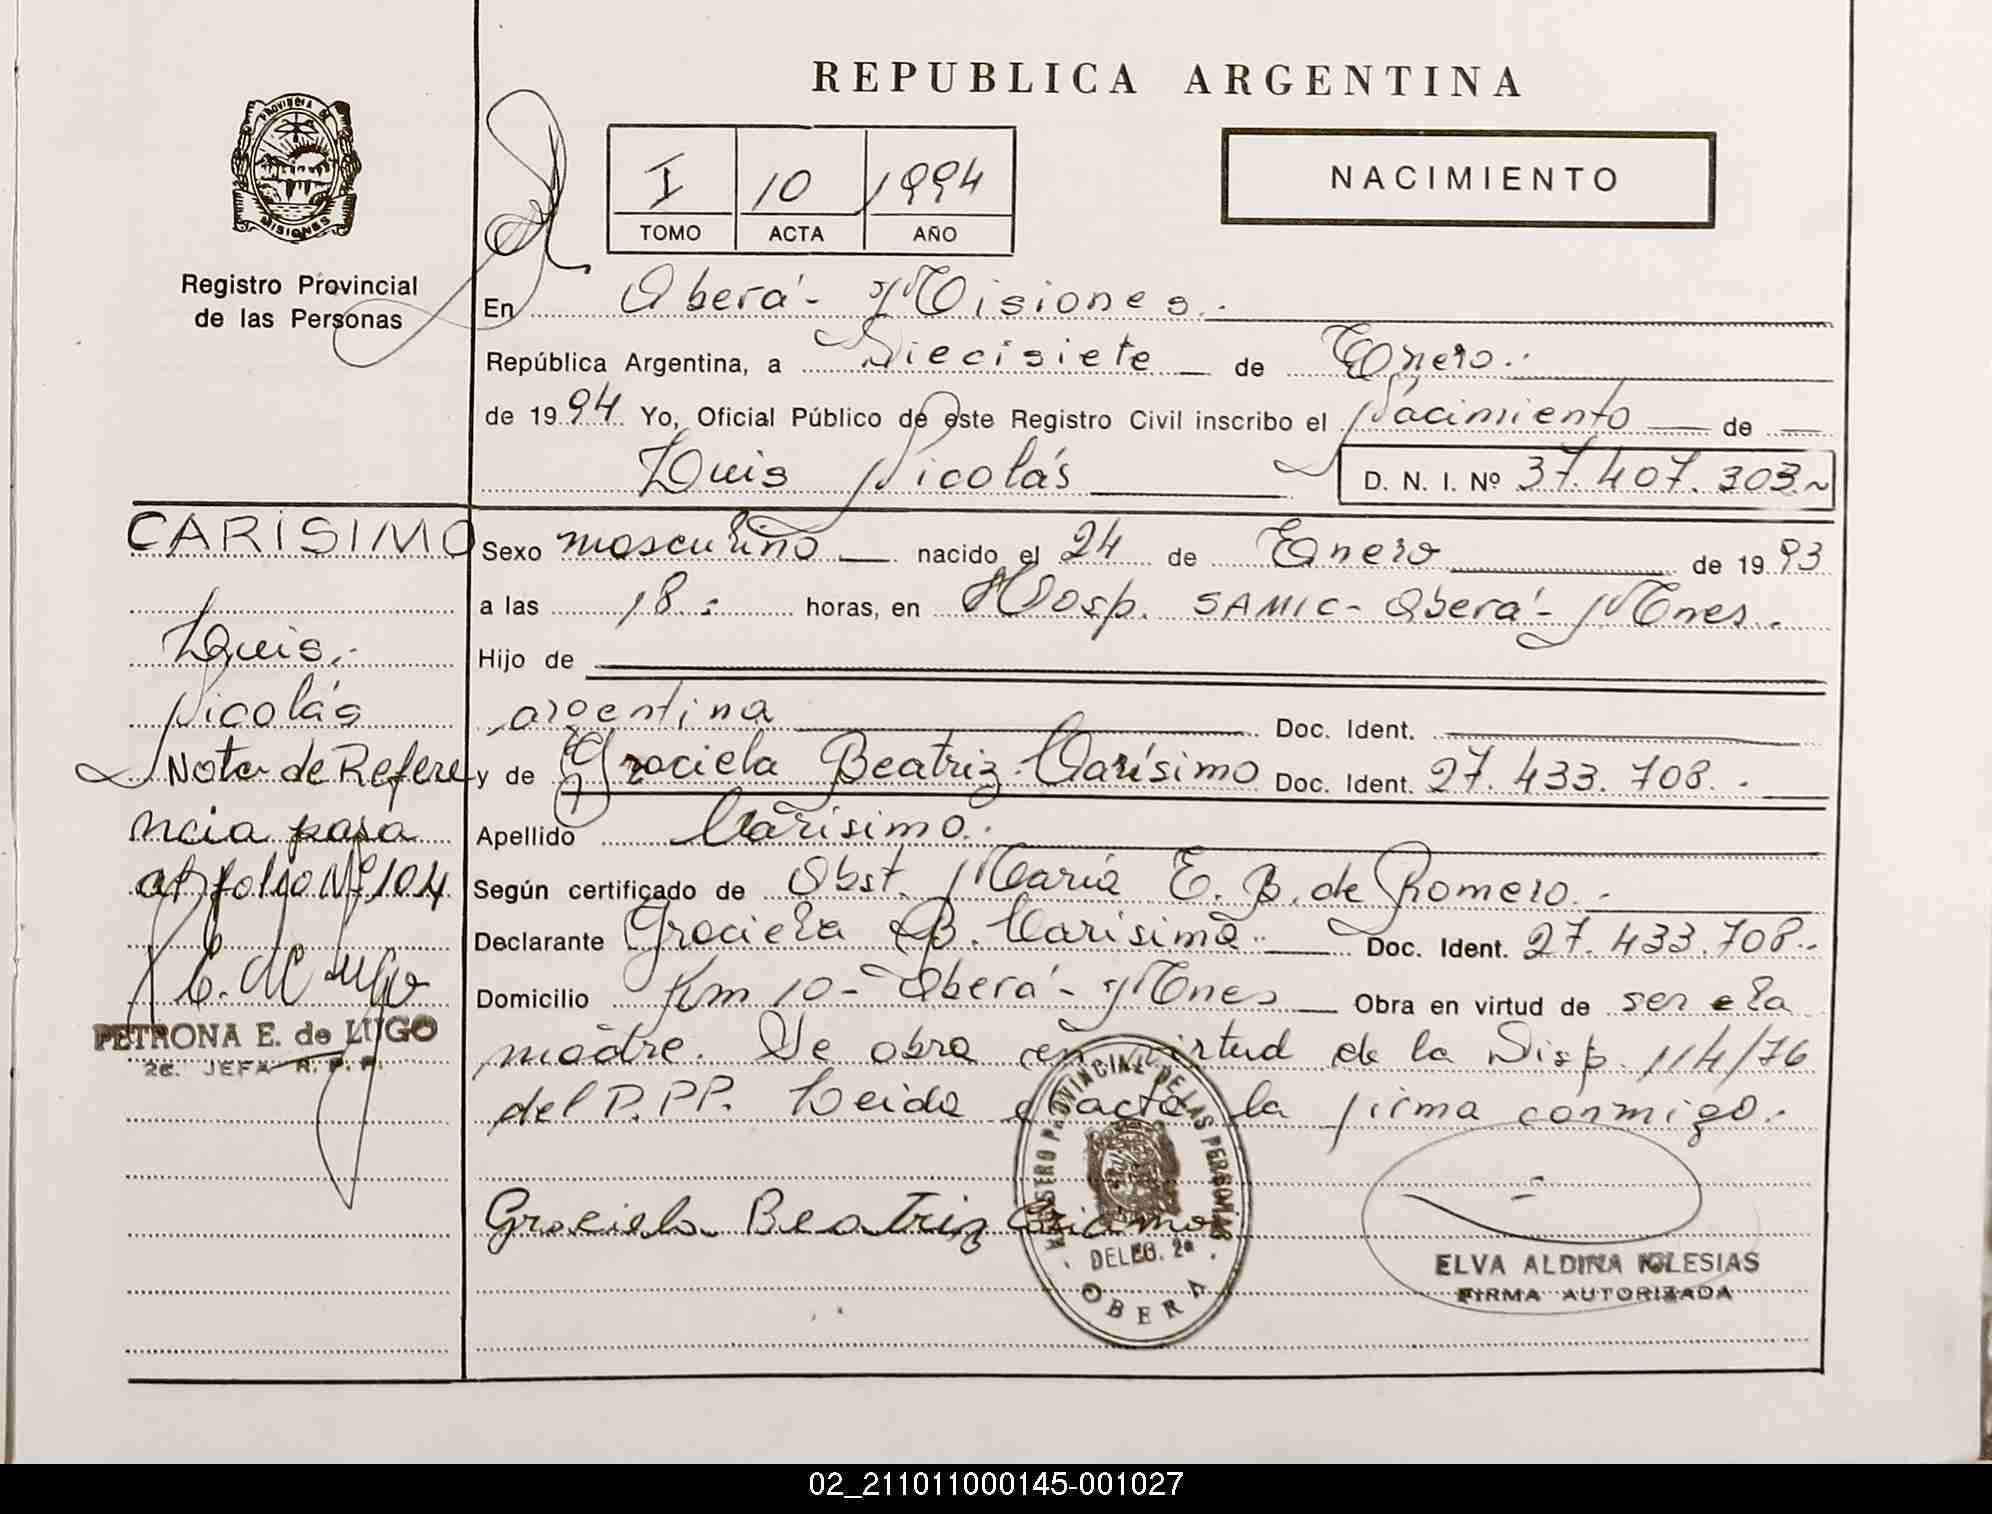 REPUBLICA ARGENTINA
PROVINCIA DE
MISIONES
Registro Provincial
de las Personas
I 10 1994
TOMO ACTA AÑO
NACIMIENTO
En Oberá - Misiones.-
República Argentina, a Diecisiete de Enero.-
de 1994 Yo, Oficial Público de este Registro Civil inscribo el Nacimiento de
Luis Nicolás D. N. I. Nº 37.407.303.~
CARISIMO
Luis.-
Nicolás
Nota de Refere
ncia pasa
al folio Nº 104
P. E. de Lugo
PETRONA E. de LUGO
2a. JEFA R. P. P.
Sexo masculino nacido el 24 de Enero de 1993
a las 18.- horas, en Hosp. SAMIC - Oberá - Mnes.
Hijo de
argentina Doc. Ident.
y de Graciela Beatriz Carísimo Doc. Ident. 27.433.708.-
Apellido Carisimo.-
Según certificado de Obst. María E. B. de Romero.-
Declarante Graciela B. Carísimo.- Doc. Ident. 27.433.708.-
Domicilio Km 10 - Oberá - Mnes Obra en virtud de ser la
madre. Se obra en virtud de la Disp. 114/76
del R.PP. Leida el acta la firma conmigo.-
Graciela Beatriz Carisimo
REGISTRO PROVINCIAL DE LAS PERSONAS
DELEG. 2a
OBERA
ELVA ALDINA IGLESIAS
FIRMA AUTORIZADA
02_211011000145-001027